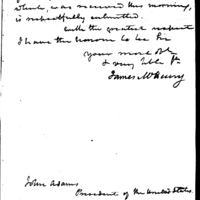 which, was received this morning,
is respectfully submitted.
with the greatest respect
I have the honor to be Sir
your most Ob
& very hble St
James McHenry
John Adams
President of the United States.